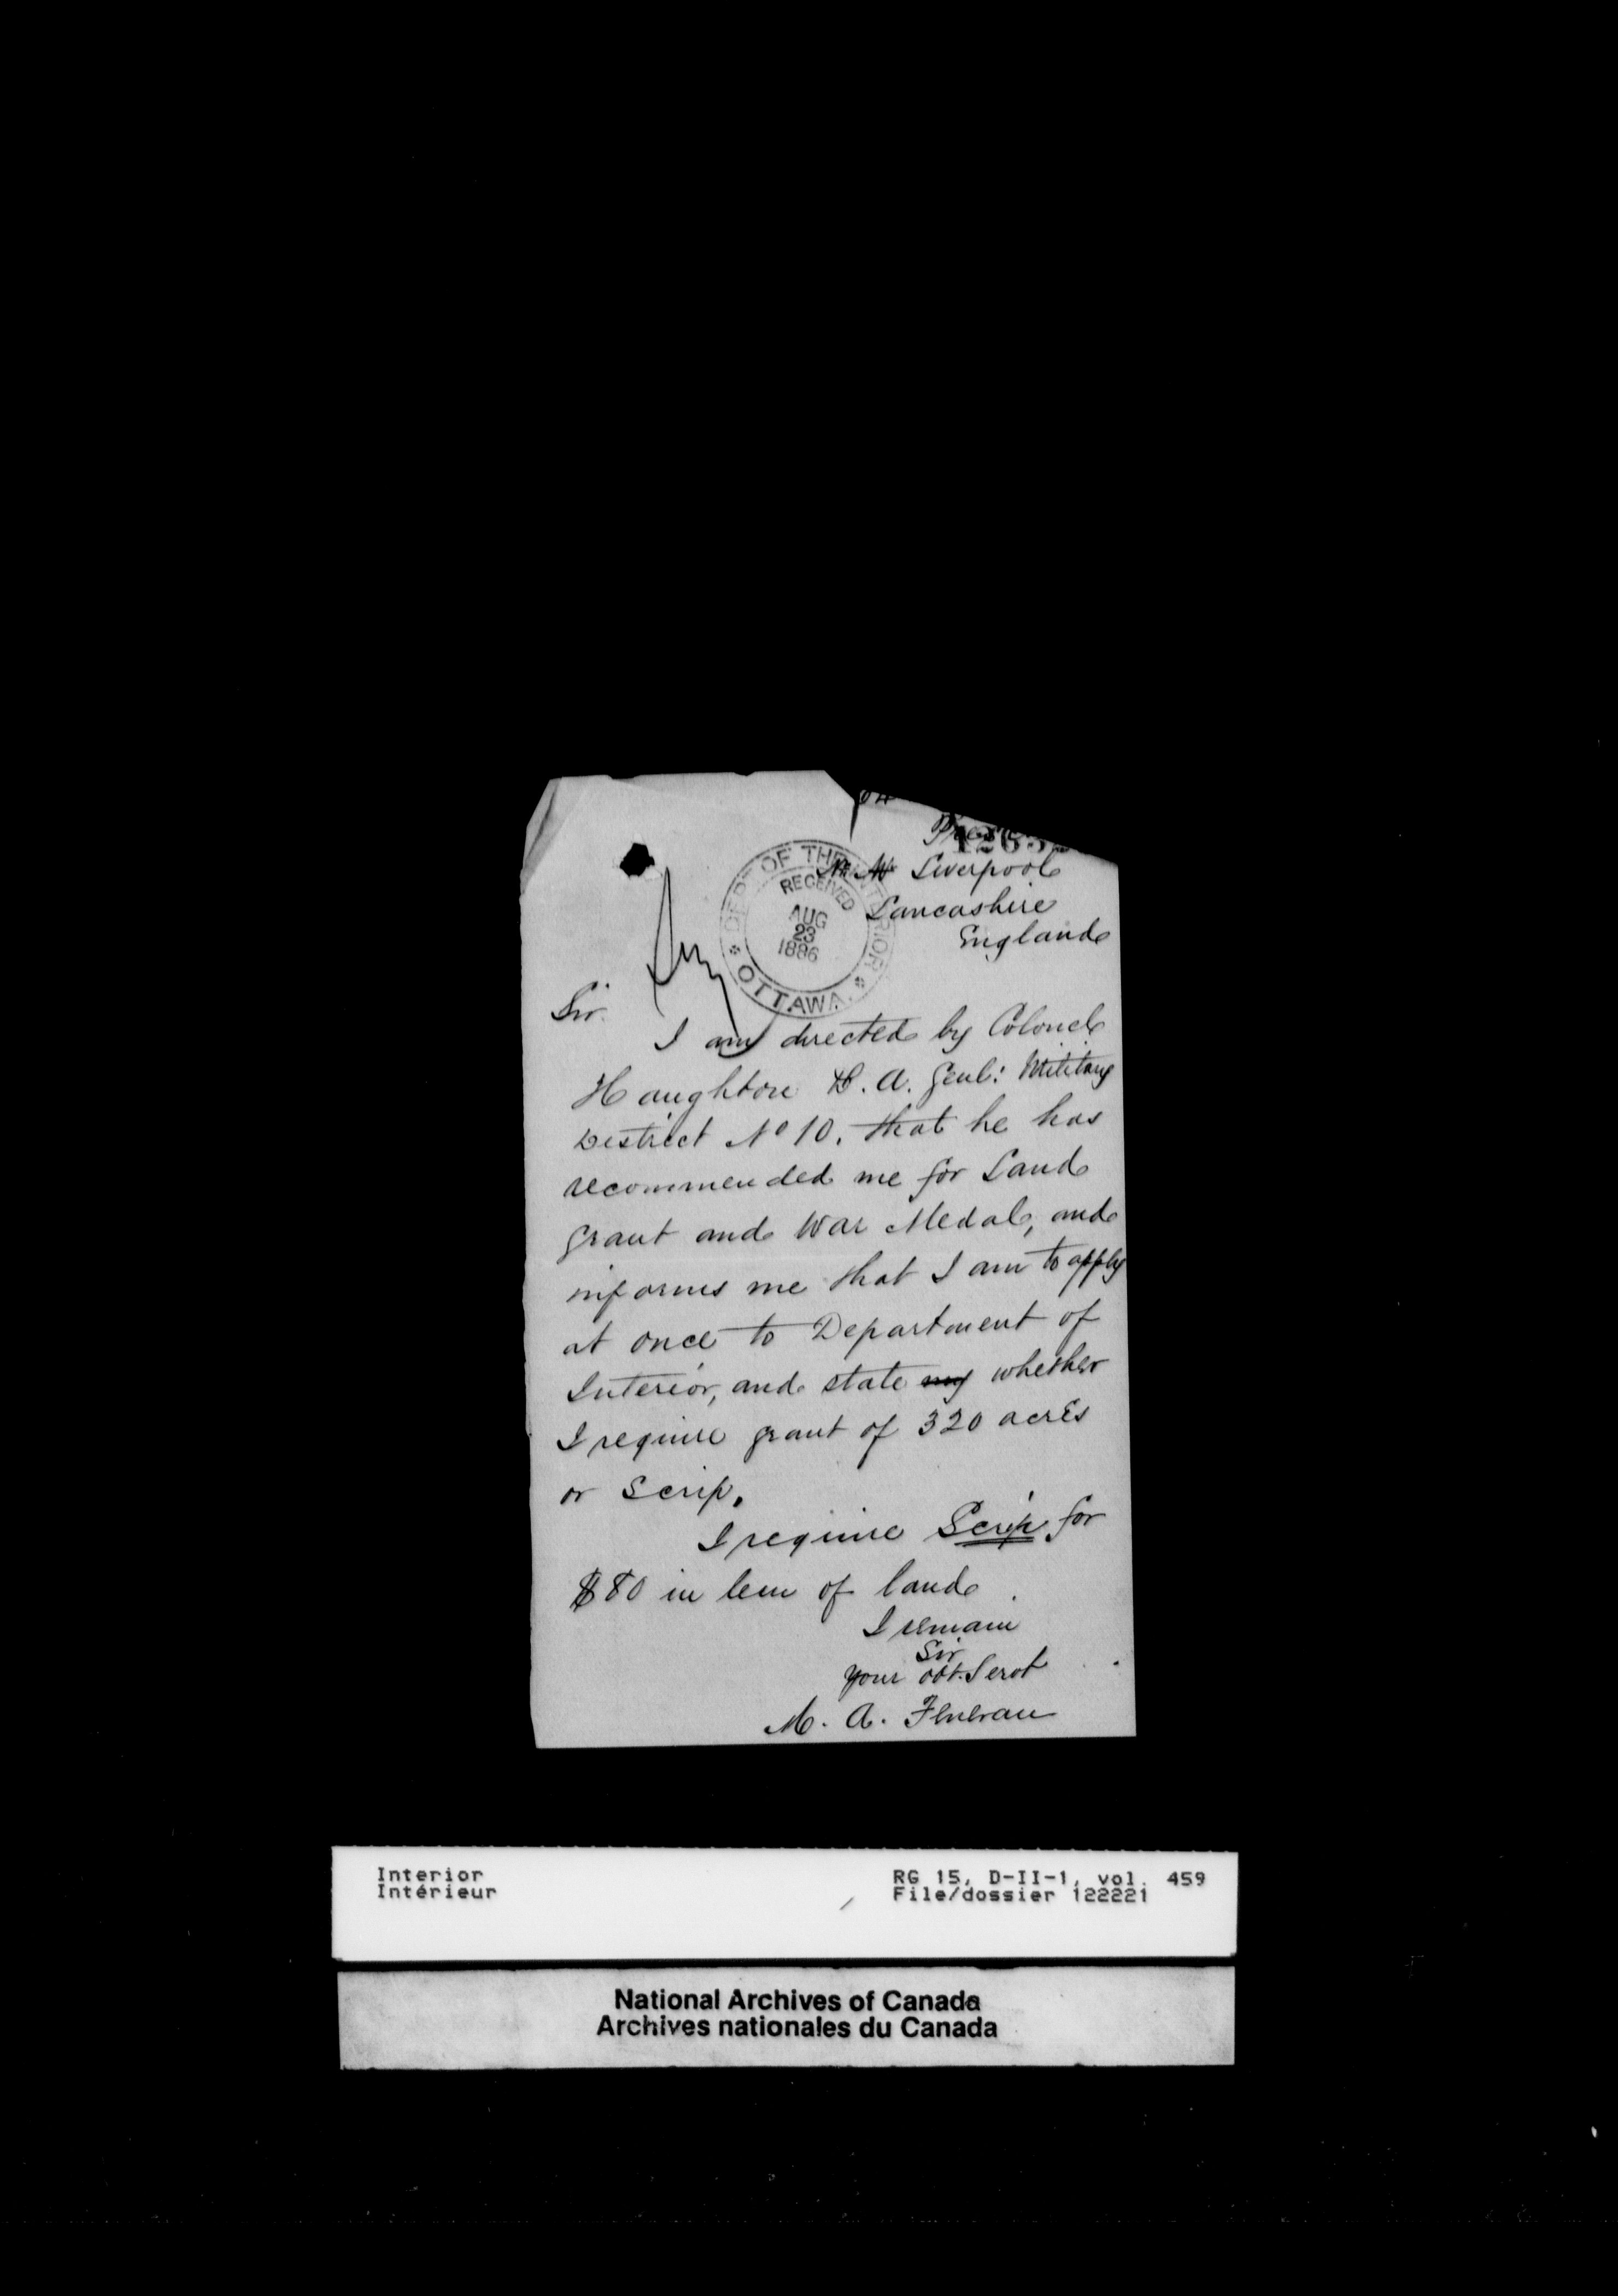 Liverpool
Lancashire
England
DEPT OF THE INTERIOR
RECEIVED
AUG
23
1886
OTTAWA.
Sir.
I am directed by Colonel
Houghton D. A. Genl: Military
District No 10. that he has
recommended me for Land
grant and War Medal, and
informs me that I am to apply
at once to Department of
Interior, and state my whether
I require grant of 320 acres
or Scrip.
I require Scrip for
$80 in leiu of land.
I remain
Sir
Your obt. Servt
M. A.
Interior
Intérieur
RG 15, D-II-1, vol. 459
File/dossier 122221
National Archives of Canada
Archives nationales du Canada